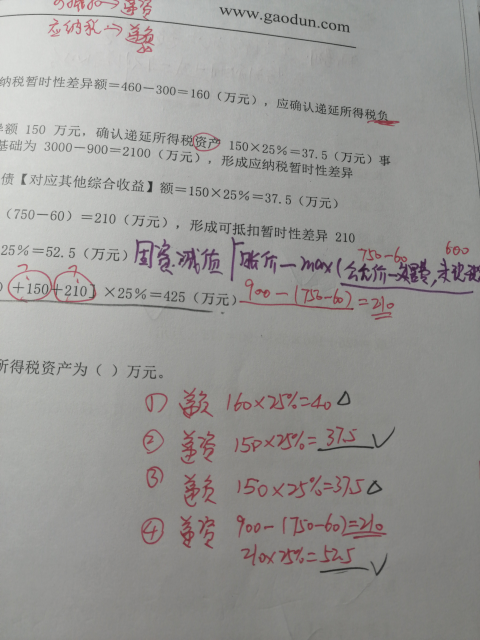 www.gaodun.com
应纳税→递负
纳税暂时性差异额＝460－300＝160（万元），应确认递延所得税负
异额 150 万元，确认递延所得税资产 150×25%＝37.5（万元）事
基础为 3000－900＝2100（万元），形成应纳税暂时性差异
债【对应其他综合收益】额＝150×25%＝37.5（万元）
（750－60）＝210（万元），形成可抵扣暂时性差异 210
750-60 600
25%＝52.5（万元）固资减值 账价－max(公允价－处置费,
+150+210］×25%＝425（万元）900-(750-60)=210
所得税资产为（ ）万元。
① 递负 160×25%=40 △
② 递资 150×25%=37.5 √
③ 递负 150×25%=37.5 △
④ 递资 900-(750-60)=210
210×25%=52.5 √